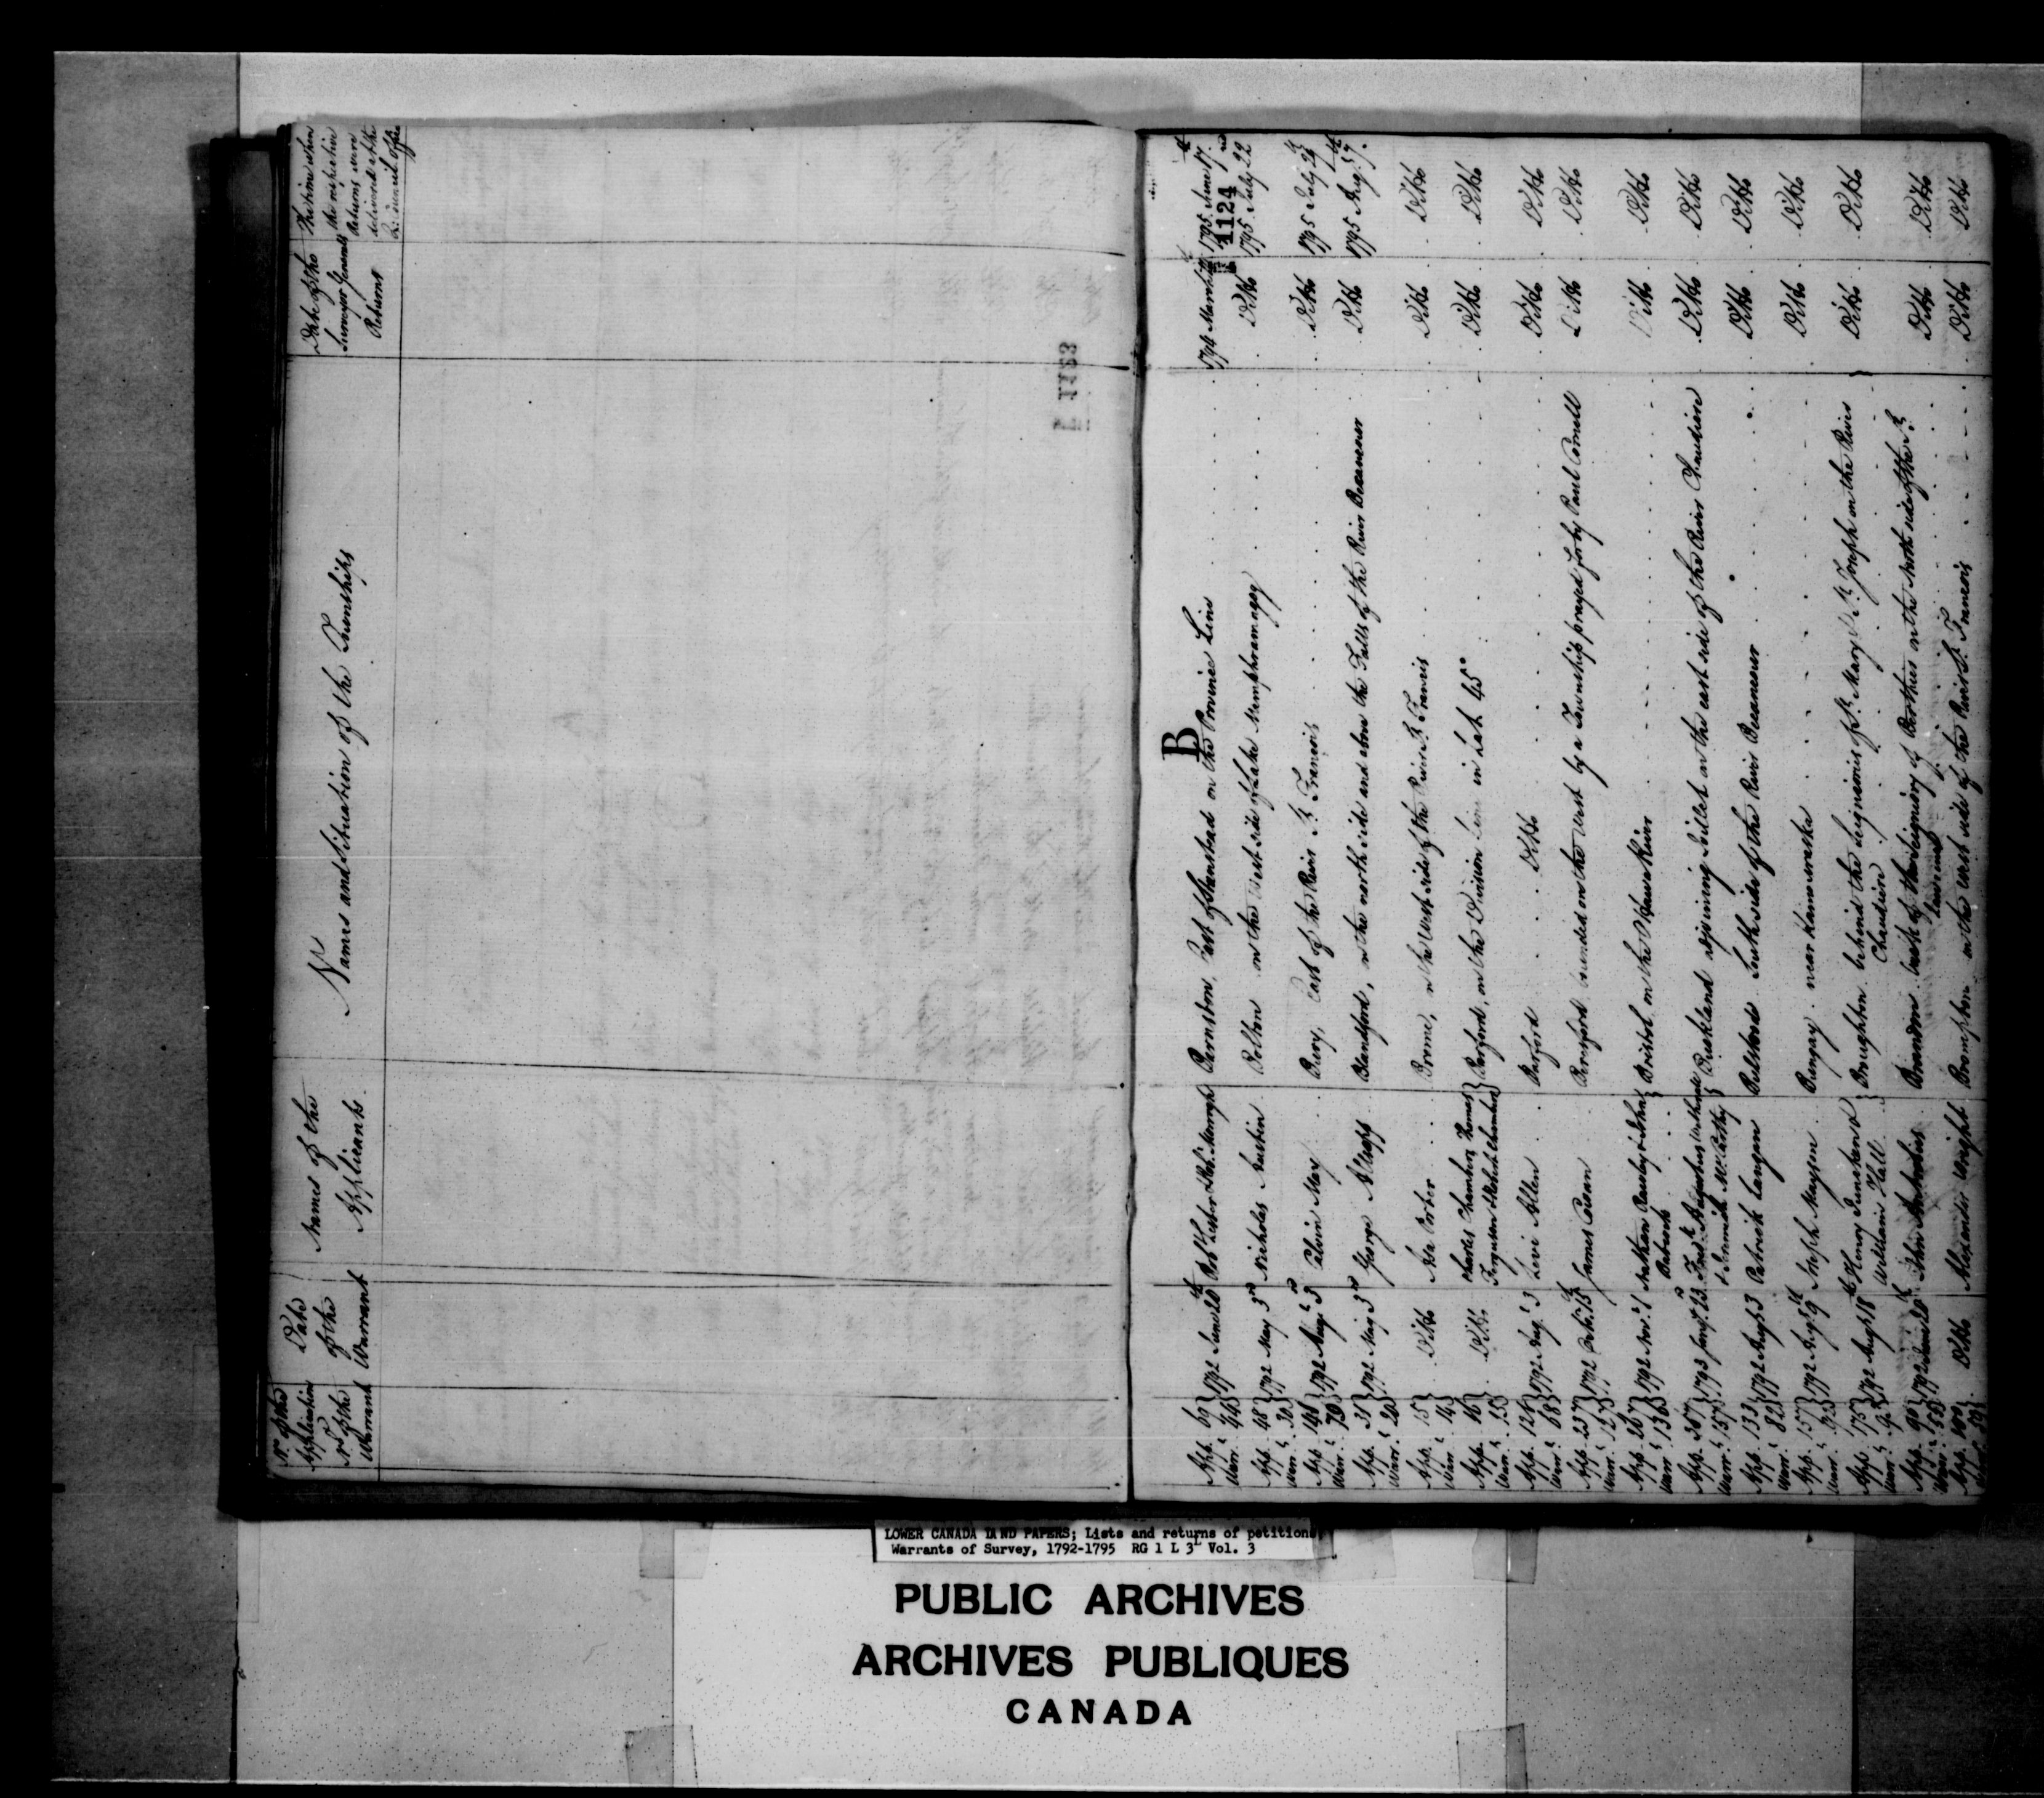 No. of the Application & No. of the Warrant
Date of the Warrant
Names of the Applicants
Names and Situation of the Townships
Date of the Surveyor Generals Returns
The time when the respective Returns were delivered at the Council Office
1123
B
1124
App. 69 Warr. 44 } 1792 June 20th Robt. Lester & Robt. Morrogh Barnston, East of Stanstead on the Province Line 1794 March 1795 June 17th
App. 48 Warr. 30 } 1792 May 3d Nicholas Austin Bolton on the West side of Lake Memphramagog Ditto 1795 July 22nd
1792 Augt. 3d Calvin May Bury, East of the River St. Francis Ditto 1795 July
App. 31 Warr. 20 } 1792 May 3d George Allsopp Blandford, on the north side and above the Falls of the River Becancour Ditto 1795 Augt. 7th
App. 15 Warr. Ditto Asa Porter Brome, on the West side of the River St. Francis Ditto Ditto
App. 46 Warr. Ditto Charles Chambers, Thomas Ferguson & Robert Chambers } Barford, on the Division Line in Lat. 45° Ditto Ditto
App. 124 Warr. 68 } 1792 Augt. 3 Levi Allen Barford Ditto Ditto Ditto
App. 237 Warr. 127 } 1792 Octr. 15th James Cuenn Boresford bounded on the West by a Township prayed for by Paul Cornell Ditto Ditto
App. 267 Warr. 136 } 1792 Nov. 1 Nathan Rawley & John } Bristol on the Ottawa River Ditto Ditto
App. 307 Warr. 157 } 1793 Jany. 23 & Jeremiah McCarthy } Buckland adjoining Jillet on the east side of the River Chaudiere Ditto Ditto
App. 133 Warr. 82 } 1792 Augt. 3 Patrick Langan Bulstrode South side of the River Becancour Ditto Ditto
App. 157 Warr. 92 } 1792 Augt. 9th Joseph Mayson Bungay near Kamouraska Ditto Ditto
App. 175 Warr. } 1792 Augt. 18th Henry Juncken & William Hall } Broughton behind the Seigniories of St. Mary & St. Joseph on the River Chaudiere Ditto Ditto
App. 90 Warr. 58 } 1792 June 20th John Antrobus Brandon back of the Seigniory of Berthier on the North side of the St. Lawrence Ditto Ditto
App. 100 Ditto Alexander Wright Brompton on the west side of the River St. Francis Ditto Ditto
LOWER CANADA LAND PAPERS; Lists and returns of petitions
Warrants of Survey, 1792-1795 RG 1 L 3L Vol. 3
PUBLIC ARCHIVES
ARCHIVES PUBLIQUES
CANADA